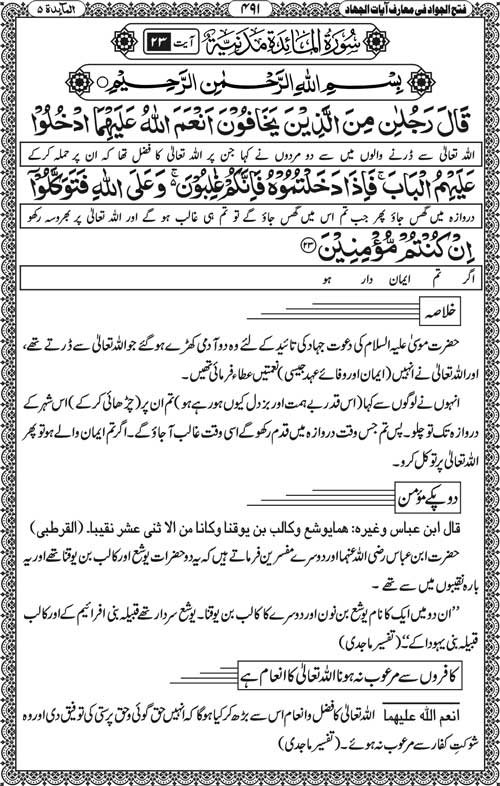 المآيدة ۵
۴۹۱
فتح الجواد فی معارف آیات الجهاد
سُوْرَةُ الْمَائِدَةِ مَدَنِيَّةٌ آیت ۲۳
بِسْمِ اللهِ الرَّحْمٰنِ الرَّحِيْمِ
قَالَ رَجُلٰنِ مِنَ الَّذِيْنَ يَخَافُوْنَ اَنْعَمَ اللهُ عَلَيْهِمَا ادْخُلُوْا
اللہ تعالیٰ سے ڈرنے والوں میں سے دو مردوں نے کہا جن پر اللہ تعالیٰ کا فضل تھا کہ ان پر حملہ کر کے
عَلَيْهِمُ الْبَابَ ۚ فَاِذَا دَخَلْتُمُوْهُ فَاِنَّكُمْ غٰلِبُوْنَ ۚ وَعَلَى اللهِ فَتَوَكَّلُوْٓا
دروازہ میں گھس جاؤ پھر جب تم اس میں گھس جاؤ گے تو تم ہی غالب ہو گے اور اللہ تعالیٰ پر بھروسہ رکھو
اِنْ كُنْتُمْ مُّؤْمِنِيْنَ ۲۳
اگر تم ایمان دار ہو
خلاصہ
حضرت موسیٰ علیہ السلام کی دعوت جہاد کی تائید کے لئے وہ دو آدمی کھڑے ہو گئے جو اللہ تعالیٰ سے ڈرتے تھے،
اور اللہ تعالیٰ نے انہیں (ایمان اور وفائے عہد جیسی) نعمتیں عطاء فرمائی تھیں۔
انہوں نے لوگوں سے کہا (اس قدر بے ہمت اور بزدل کیوں ہو رہے ہو) تم ان پر (چڑھائی کر کے) اس شہر کے
دروازہ تک تو چلو۔ پس تم جس وقت دروازہ میں قدم رکھو گے اسی وقت غالب آ جاؤ گے۔ اگر تم ایمان والے ہو تو پھر
اللہ تعالیٰ پر توکل کرو۔
دو پکے مؤمن
قال ابن عباس وغیرہ: همایوشع وكالب بن یوقنا وكانا من الاثنی عشر نقیبا۔ (القرطبی)
حضرت ابن عباس رضی اللہ عنہما اور دوسرے مفسرین فرماتے ہیں کہ یہ دو حضرات یوشع اور کالب بن یوقنا تھے اور یہ
بارہ نقیبوں میں سے تھے۔
”ان دو میں ایک کا نام یوشع بن نون اور دوسرے کا کالب بن یوقنا۔ یوشع سردار تھے قبیلہ بنی افرائیم کے اور کالب
قبیلہ بنی یہودا کے“۔ (تفسیر ماجدی)
کافروں سے مرعوب نہ ہونا اللہ تعالیٰ کا انعام ہے
انعم اللہ علیهما اللہ تعالیٰ کا فضل و انعام اس سے بڑھ کر کیا ہو گا کہ انہیں حق گوئی و حق پرستی کی توفیق دی اور وہ
شوکتِ کفار سے مرعوب نہ ہوئے۔ (تفسیر ماجدی)